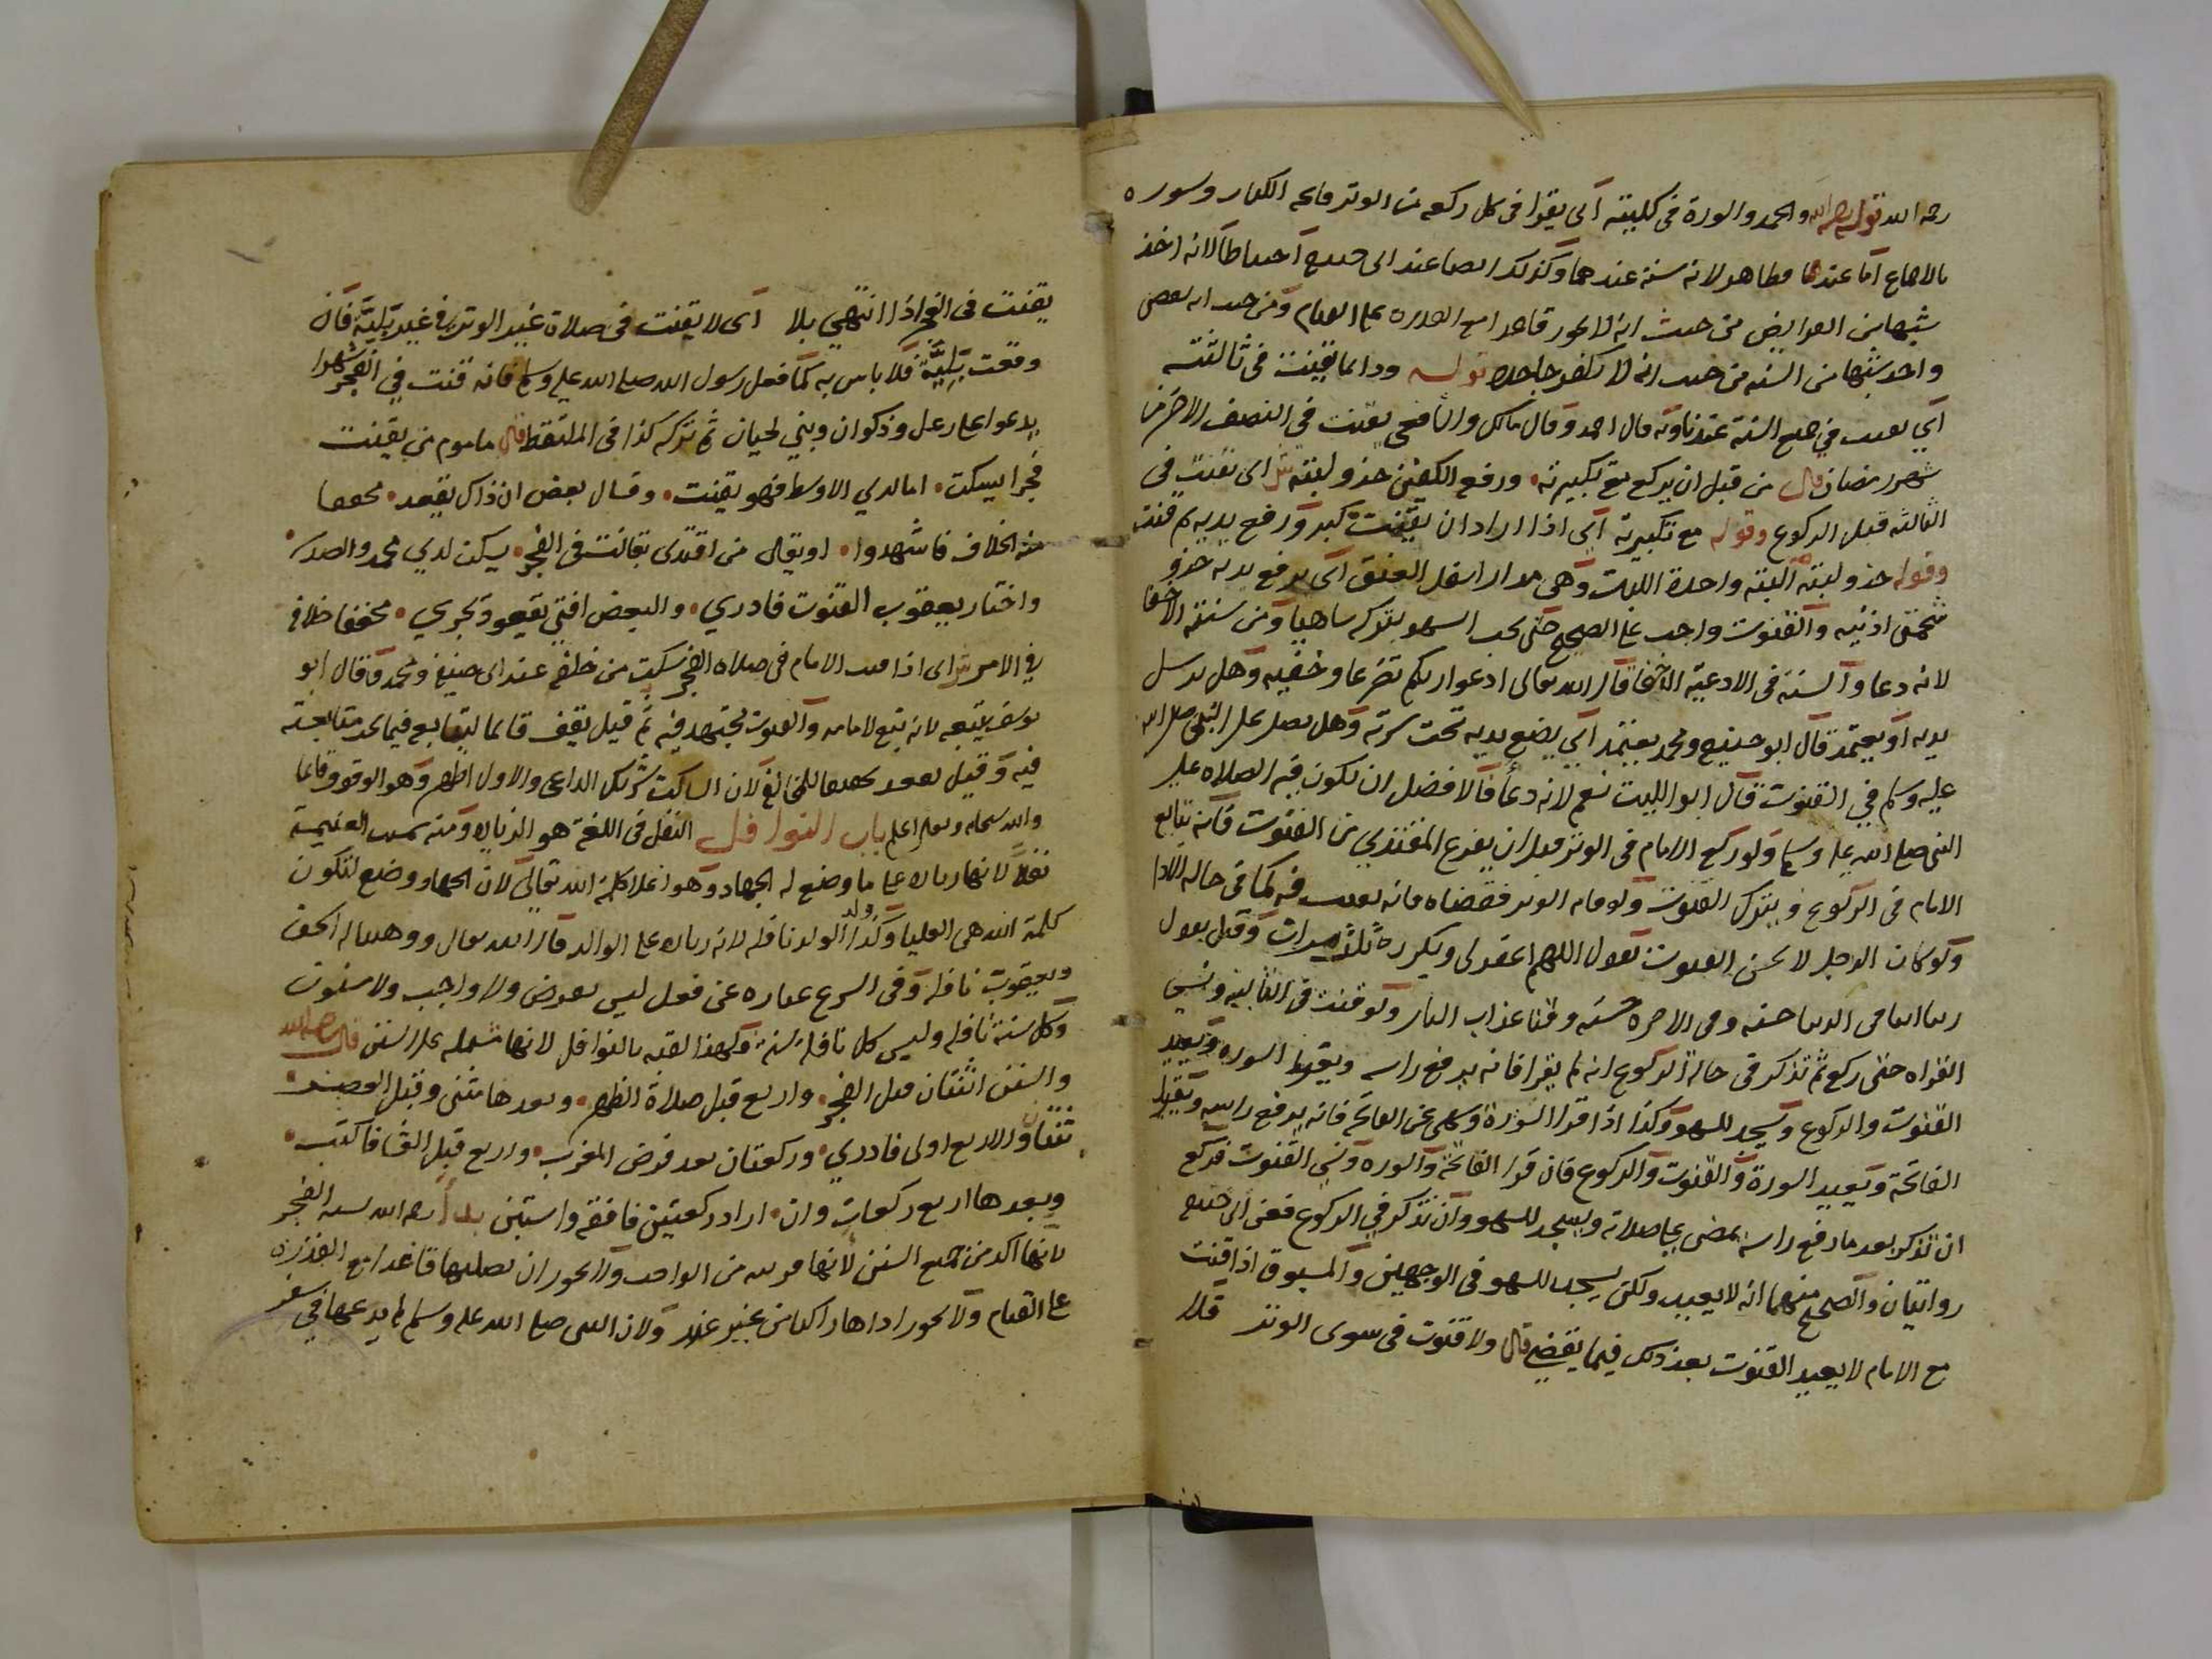 رحمه الله قوله رحمه الله والحمد والسورة في كليته أي يقرا في كل ركعة من الوتر فاتحة الكتاب وسورة
بالاجماع أما عندهما فظاهر لانه سنة عندهما وكذلك ايضا عند ابي حنيفة احتياطا لانه اخذ
شبها من الفرايض من حيث انه لا يجوز قاعدا مع القدرة على القيام ومن حيث انه يقضى
واخذ شبها من السنة من حيث انه لا يكفر جاحده قوله ودايما يقنت في ثالثته
أي يقنت في جميع السنة عندنا وبه قال احمد وقال مالك والشافعي يقنت في النصف الاخر من
شهر رمضان قال من قبل ان يركع مع تكبيرته ورفع الكفين حذو لبته ش أي يقنت في
الثالثة قبل الركوع وقوله مع تكبيرته أي اذا اراد ان يقنت كبر ورفع يديه ثم قنت
وقوله حذو لبته اللبة واحدة اللبات وهي مدار اسفل العنق أي يرفع يديه حذو
شحمتي اذنيه والقنوت واجب على الصحيح حتى يجب السهو بتركه ساهيا ومن سنته الاخفا
لانه دعا والسنة في الادعية الاخفا قال الله تعالى ادعوا ربكم تضرعا وخفية وهل يرسل
يديه أو يعتمد قال ابو حنيفة ومحمد يعتمد أي يضع يديه تحت سرته وهل يصلي على النبي صلى الله
عليه وسلم في القنوت قال ابو الليث نعم لانه دعا فالافضل ان تكون فيه الصلاة على
النبي صلى الله عليه وسلم ولو ركع الامام في الوتر قبل ان يفرغ المقتدي من القنوت فانه يتابع
الامام في الركوع ويترك القنوت ولو فاته الوتر فقضاه فانه يقنت فيه كما في حالة الادا
ولو كان الرجل لا يحسن القنوت يقول اللهم اغفر لي ويكرره ثلاث مرات وقيل يقول
ربنا اتنا في الدنيا حسنة وفي الاخرة حسنة وقنا عذاب النار ولو قنت في الثانية ونسي
القراة حتى ركع ثم تذكر في حالة الركوع انه لم يقرا فانه يرفع راسه ويقرا السورة ويعيد
القنوت والركوع ويسجد للسهو وكذا اذا قرا السورة ونسي الفاتحة فانه يرفع راسه ويقرا
الفاتحة ويعيد السورة والقنوت والركوع فان قرا الفاتحة والسورة ونسي القنوت فركع
ان تذكر بعد ما رفع راسه يمضي على صلاته ويسجد للسهو وان تذكر في الركوع فعن ابي حنيفة
روايتان والصحيح منهما انه لا يعيد ولكن يسجد للسهو في الوجهين والمسبوق اذا قنت
مع الامام لا يعيد القنوت بعد ذلك فيما يقضي قال ولا قنوت في سوى الوتر فلا
يقنت في الفجر اذا انتهى بلا أي لا يقنت في صلاة غير الوتر في غير بلية فان
وقعت بلية فلا باس به كما فعل رسول الله صلى الله عليه وسلم فانه قنت في الفجر شهرا
يدعوا على رعل وذكوان وبني لحيان ثم تركه كذا في الملتقط قال ماموم من يقنت
فجرا يسكت اما لدي الاوسط فهو يقنت وقال بعض ان ذاك يقعد محققا
منه الخلاف فاشهدوا او يقال من اقتدى بقانت في الفجر يسكن لدي محمد والصدر
واختار يعقوب القنوت فادري والبعض افتى بقعود يجري محققا خلافه
في الامر ش أي اذا قنت الامام في صلاة الفجر سكت من خلفه عند ابي حنيفة ومحمد وقال ابو
يوسف يتبعه لانه تبع لامامه والقنوت مجتهد فيه ثم قيل يقف قايما ليتابع فيما يجب متابعته
فيه وقيل يقعد تحقيقا للمخالفة لان الساكت شريك الداعي والاول اظهر وهو الوقوف قايما
والله سبحانه وتعالى اعلم باب النوافل النفل في اللغة هو الزيادة ومنه سميت الغنيمة
نفلا لانها زيادة على ما وضع له الجهاد وهو اعلا كلمة الله تعالى لان الجهاد وضع لتكون
كلمة الله هي العليا وكذا ولد الولد نافلة لانه زيادة على الوالد قال الله تعالى ووهبنا له اسحق
ويعقوب نافلة وفي الشرع عبارة عن فعل ليس بفرض ولا واجب ولا مسنون
وكل سنة نافلة وليس كل نافلة سنة ولهذا لقبه بالنوافل لانها مشتملة على السنن قال رحمه الله
والسنن اثنتان قبل الفجر واربع قبل صلاة الظهر وبعدها مثنى وقبل العصر
ثنتان والاربع اولى فادري وركعتان بعد فرض المغرب واربع قبل العشا فاكتب
وبعدها اربع ركعات وان اراد ركعتين فافقه واستبن بدأ رحمه الله بسنة الفجر
لانها اكد من جميع السنن لانها قريبة من الواجب ولا يجوز ان يصليها قاعدا مع القدرة
على القيام ولا يجوز اداها راكبا من غير عذر ولان النبي صلى الله عليه وسلم لم يدعها في سفر